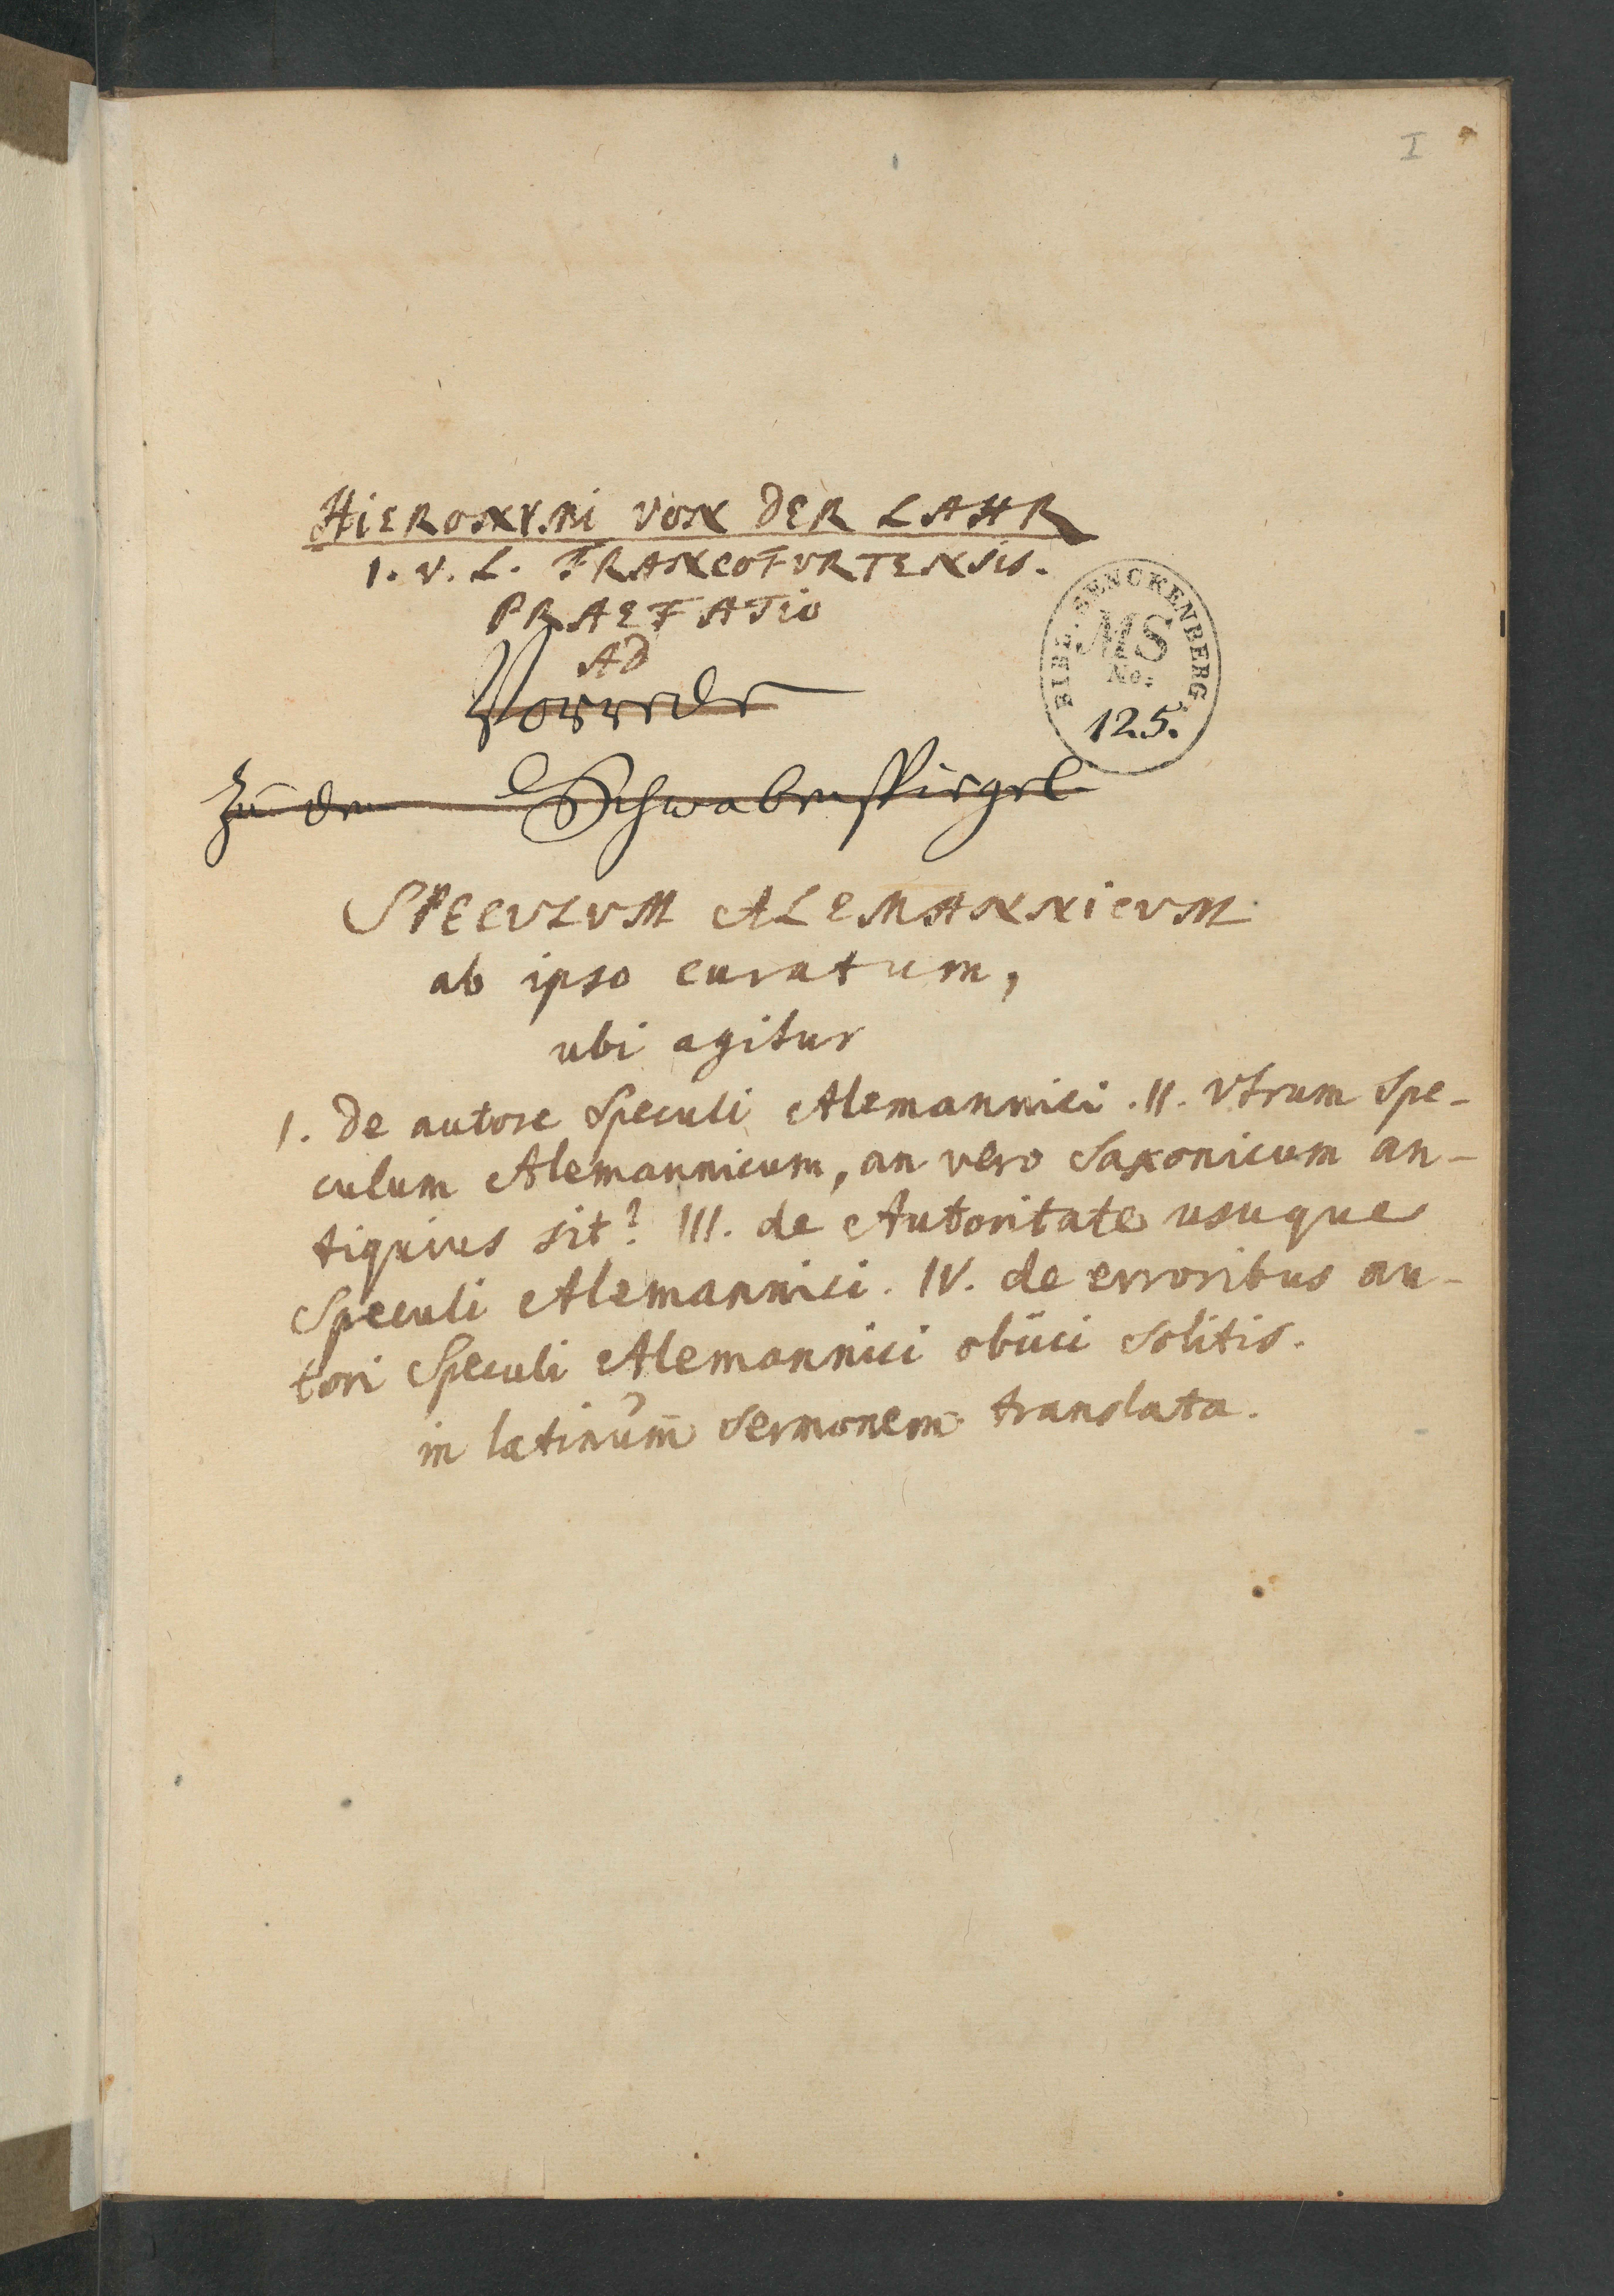 I
HIERONYMI VON DER LAHR
I. V. L. FRANCOFURTENSIS.
PRAEFATIO
AD
Vorrede
BIBL. SENCKENBERG.
MS
No:
125.
zu dem Schwabenspiegel
SPECULUM ALEMANNICUM
ab ipso curatum,
ubi agitur
I. De autore Speculi Alemannici. II. Vtrum Spe-
culum Alemannicum, an vero Saxonicum an-
tiquius sit? III. de Autoritate usuque
Speculi Alemannici. IV. de erroribus au-
tori Speculi Alemannici obiici solitis.
in latinum sermonem translata.